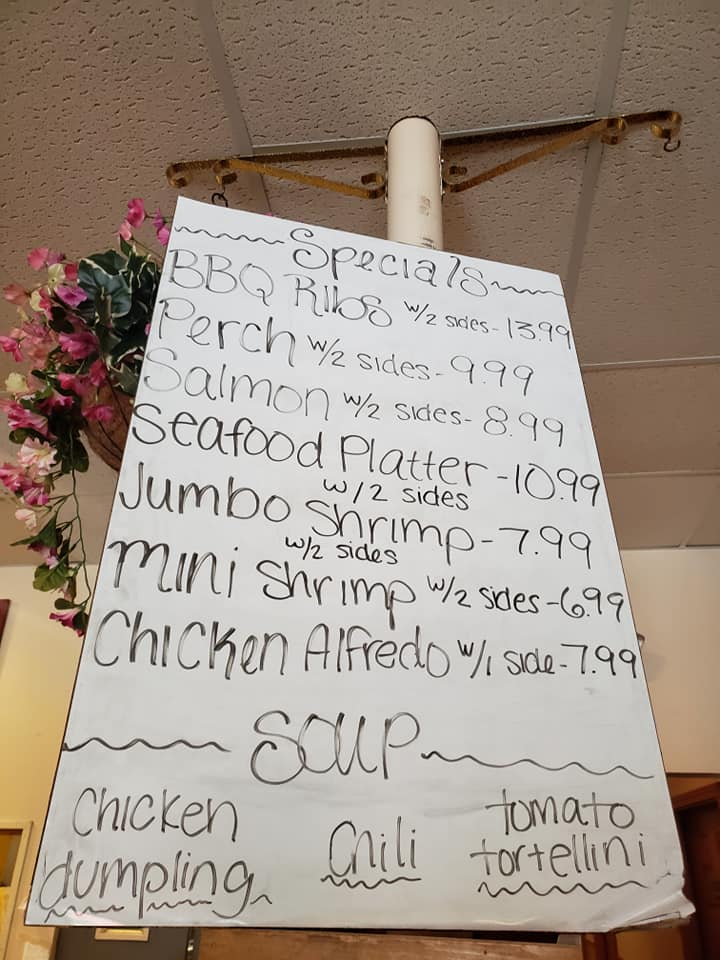 Specials
BBQ Ribs w/2 sides - 13.99
Perch w/2 sides - 9.99
Salmon w/2 sides - 8.99
Seafood Platter - 10.99
w/2 sides
Jumbo Shrimp - 7.99
w/2 sides
mini Shrimp w/2 sides - 6.99
Chicken Alfredo w/1 side - 7.99
Soup
Chicken
dumpling
Chili
tomato
tortellini